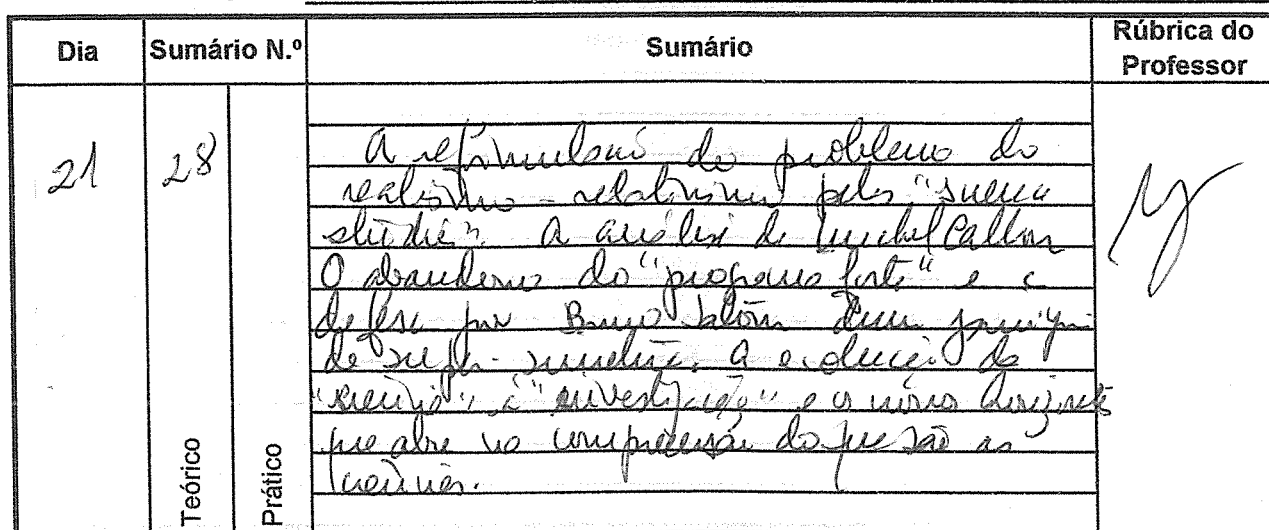 Dia Sumário N.º Sumário Rúbrica do Professor
21 28
A reformulação do problema do
realismo - relativismo pelos "science
studies". A análise de Michel Callon
O abandono do "programa forte" e a
defesa por Bruno Latour dum princípio
de super-simetria. A evolução da
"ciência" à "investigação" e os novos horizontes
que abre na compreensão do que são as
ciências.
Teórico
Prático